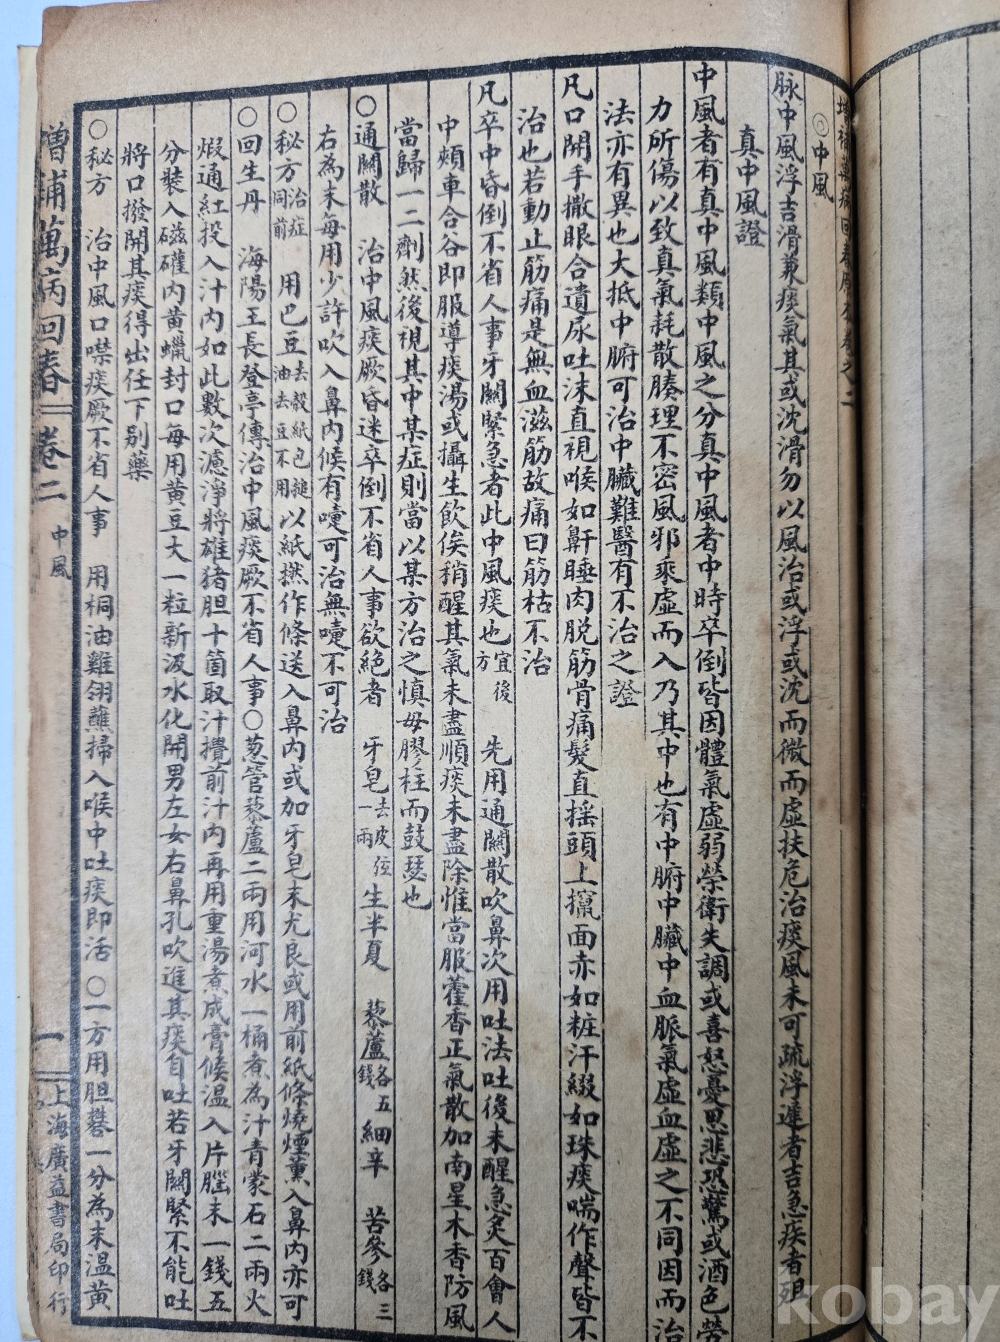 增補萬病回春卷之二
◎中風
脉中風浮吉滑兼痰氣其或沈滑勿以風治或浮或沈而微而虛扶危治痰風未可疏浮遲者吉急疾者殂
真中風證
中風者有真中風類中風之分真中風者中時卒倒皆因體氣虛弱榮衛失調或喜怒憂思悲恐驚或酒色勞
力所傷以致真氣耗散腠理不密風邪乘虛而入乃其中也有中腑中臟中血脈氣虛血虛之不同因而治
法亦有異也大抵中腑可治中臟難醫有不治之證
凡口開手撒眼合遺尿吐沫直視喉如鼾睡肉脫筋骨痛髮直搖頭上竄面赤如粧汗綴如珠痰喘作聲皆不
治也若動止筋痛是無血滋筋故痛曰筋枯不治
凡卒中昏倒不省人事牙關緊急者此中風痰也宜後方 先用通關散吹鼻次用吐法吐後未醒急灸百會人
中頰車合谷即服導痰湯或攝生飲俟稍醒其氣未盡順痰未盡除惟當服藿香正氣散加南星木香防風
當歸一二劑然後視其中某症則當以某方治之慎毋膠柱而鼓瑟也
○通關散 治中風痰厥昏迷卒倒不省人事欲絕者 牙皂去皮弦一兩 生半夏 藜蘆各五錢 細辛 苦參各三錢
右為末每用少許吹入鼻內候有嚏可治無嚏不可治
○秘方治症同前 用巴豆去殼紙包搥油去豆不用以紙撚作條送入鼻內或加牙皂末尤良或用前紙條燒煙薰入鼻內亦可
○回生丹 海陽王長登亭傳治中風痰厥不省人事○葱管藜蘆二兩用河水一桶煮為汁青蒙石二兩火
煅通紅投入汁內如此數次濾淨將雄猪胆十箇取汁攪前汁內再用重湯煮成膏候溫入片腦末一錢五
分裝入磁礶內黃蠟封口每用黃豆大一粒新汲水化開男左女右鼻孔吹進其痰自吐若牙關緊不能吐
將口撥開其痰得出任下別藥
○秘方 治中風口噤痰厥不省人事 用桐油雞翎蘸掃入喉中吐痰即活 ○一方用胆礬一分為末溫黃
增補萬病回春 卷二 中風 一 上海廣益書局印行
kobay